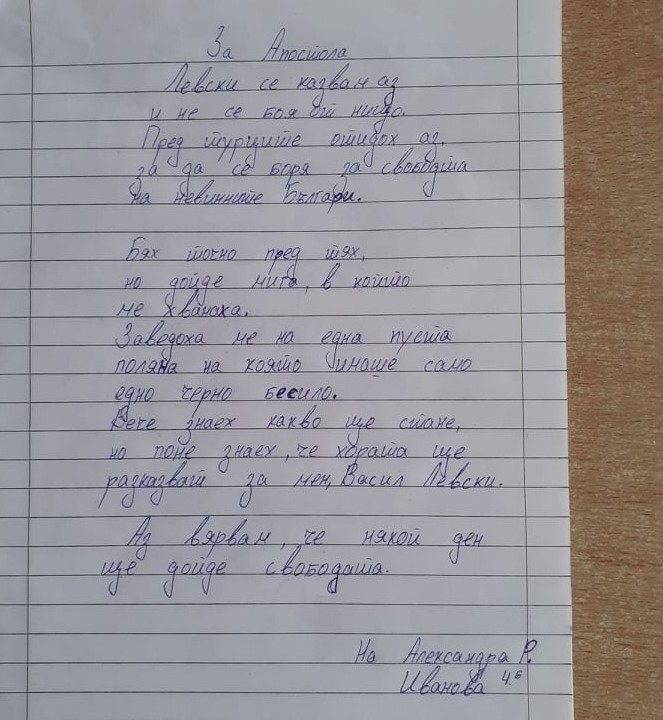 За Апостола
Левски се казвам аз
и не се боя от нищо.
Пред турците отидох аз,
за да се боря за свободта
на невинните Българи.
Бях точно пред тях,
но дойде мига, в който
ме хванаха.
Заведоха ме на една пуста
поляна на която имаше само
едно черно бесило.
Вече знаех какво ще стане,
но поне знаех, че хората ще
разказват за мен, Васил Левски.
Аз вярвам, че някой ден
ще дойде свободата.
На Александра Р.
Иванова 4.б